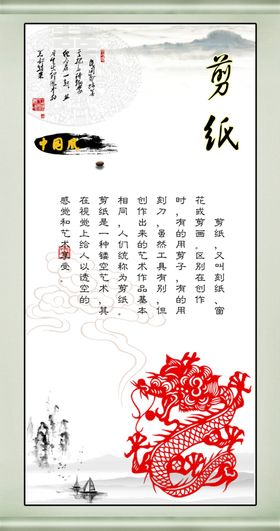 剪纸
中国風
剪纸,又叫刻纸、窗
花或剪画。区别在创作
时,有的用剪子,有的用
刻刀,虽然工具有别,但
创作出来的艺术作品基本
相同,人们统称为剪纸。
剪纸是一种镂空艺术,其
在视觉上给人以透空的
感觉和艺术享受。